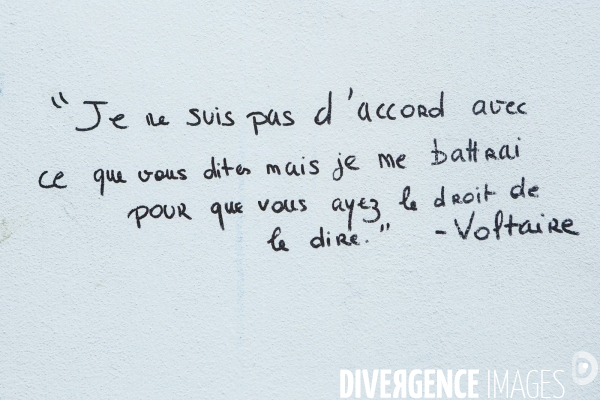 "Je ne suis pas d'accord avec
ce que vous dites mais je me battrai
pour que vous ayez le droit de
le dire." - Voltaire
DIVERGENCE IMAGES D